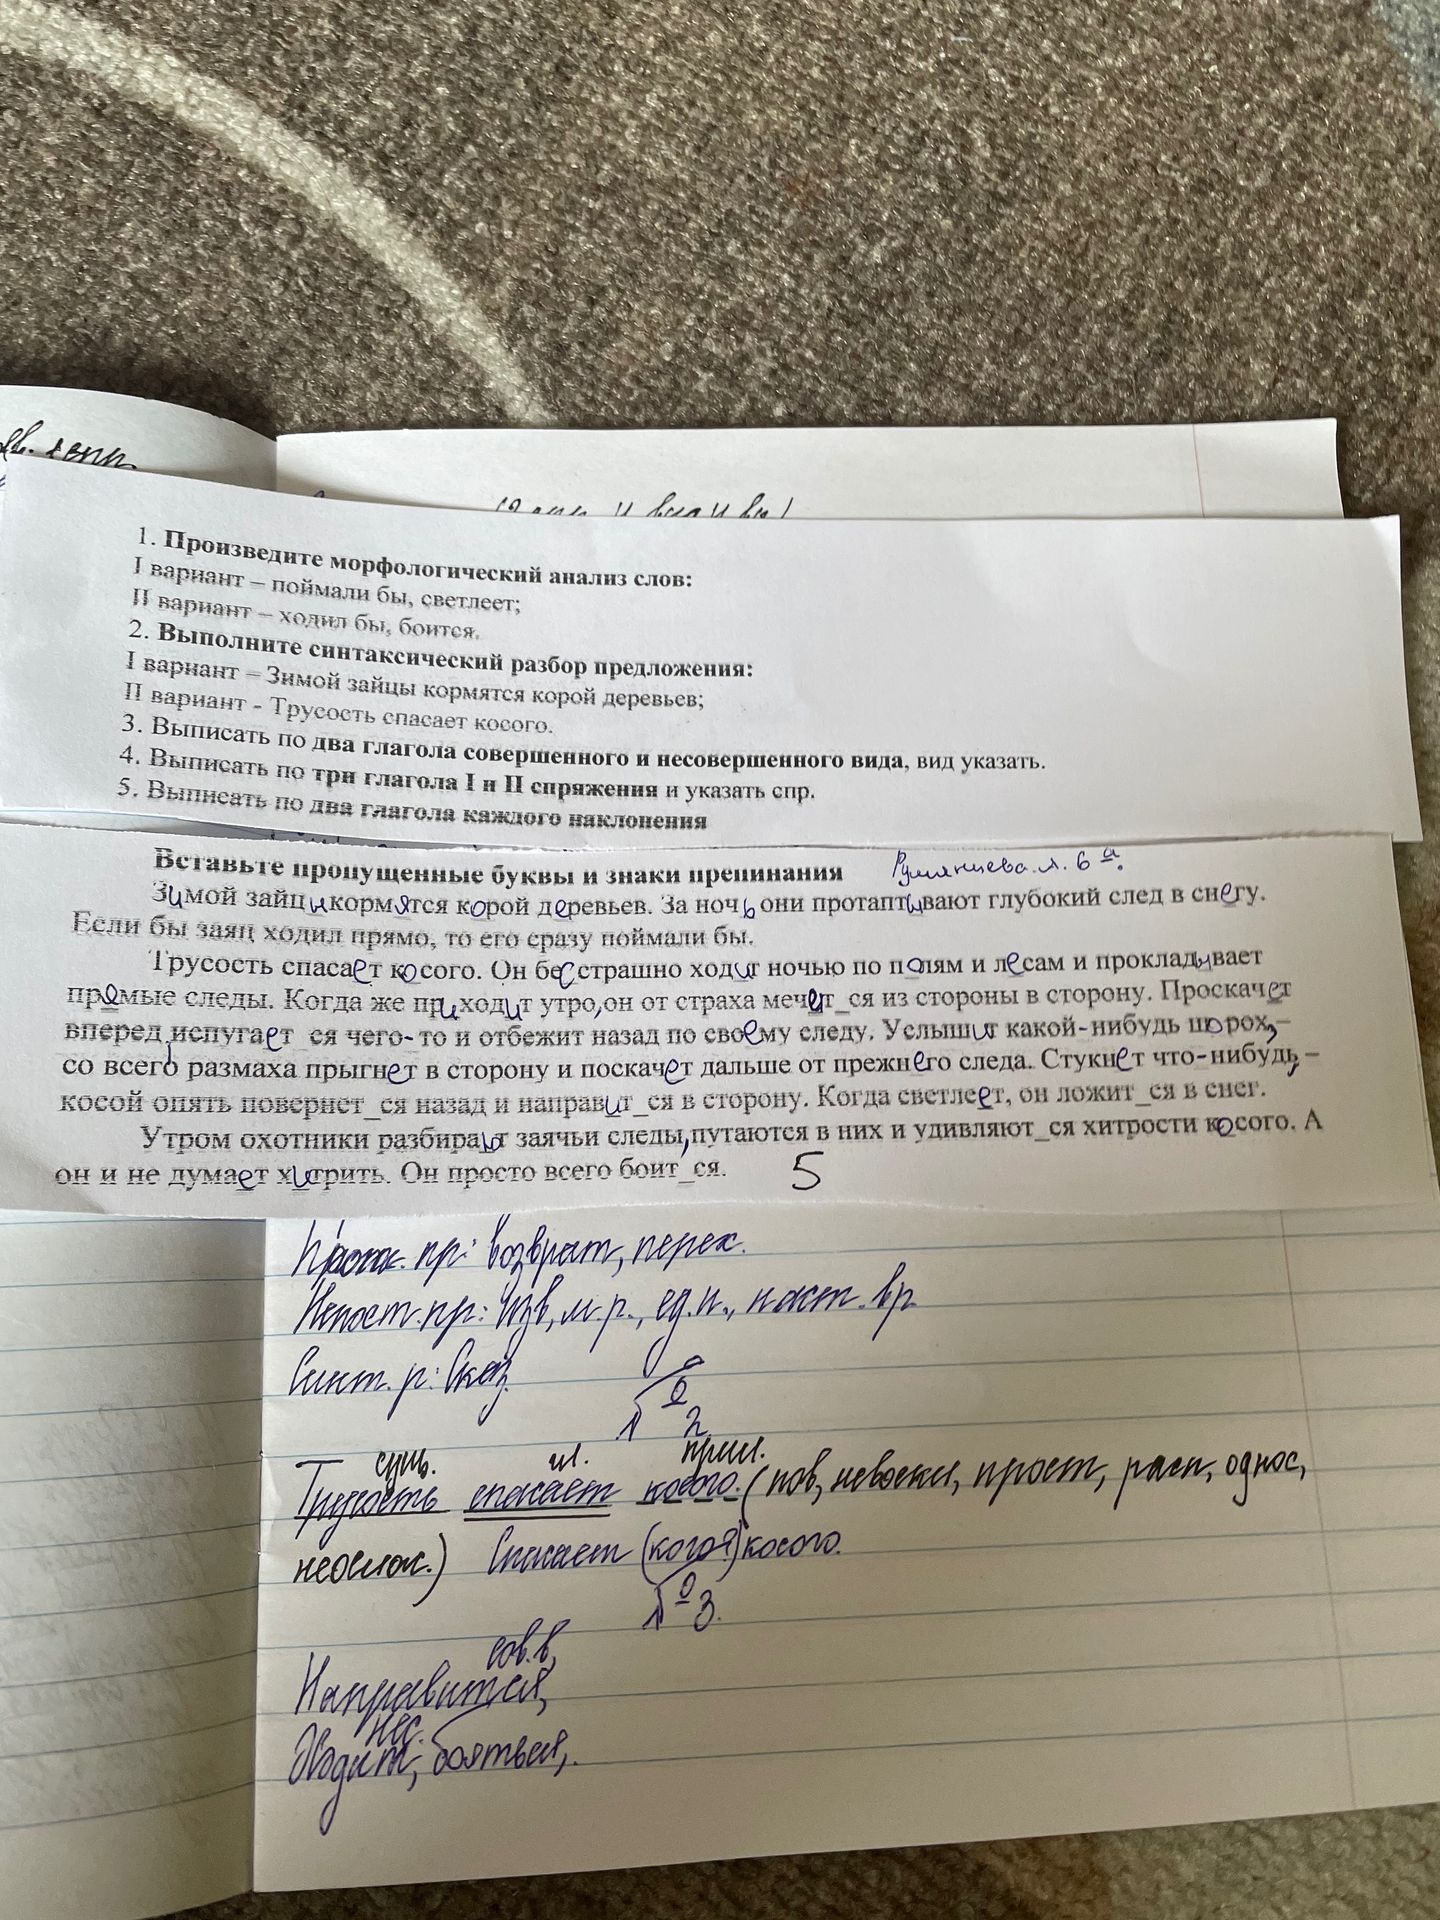 1. Произведите морфологический анализ слов:
I вариант – поймали бы, светлеет;
II вариант – ходил бы, боится.
2. Выполните синтаксический разбор предложения:
I вариант – Зимой зайцы кормятся корой деревьев;
II вариант - Трусость спасает косого.
3. Выписать по два глагола совершенного и несовершенного вида, вид указать.
4. Выписать по три глагола I и II спряжения и указать спр.
5. Выписать по два глагола каждого наклонения
Вставьте пропущенные буквы и знаки препинания Румянцева Л. 6 а.
Зимой зайцы кормятся корой деревьев. За ночь они протаптывают глубокий след в снегу.
Если бы заяц ходил прямо, то его сразу поймали бы.
Трусость спасает косого. Он бесстрашно ходит ночью по полям и лесам и прокладывает
прямые следы. Когда же приходит утро, он от страха мечет_ся из стороны в сторону. Проскачет
вперед, испугает_ся чего-то и отбежит назад по своему следу. Услышит какой-нибудь шорох, –
со всего размаха прыгнет в сторону и поскачет дальше от прежнего следа. Стукнет что-нибудь, –
косой опять повернет_ся назад и направит_ся в сторону. Когда светлеет, он ложит_ся в снег.
Утром охотники разбирают заячьи следы, путаются в них и удивляют_ся хитрости косого. А
он и не думает хитрить. Он просто всего боит_ся. 5
пр: возврат, перех.
Непост. пр: Изв, м.р., ед.ч., наст. вр.
Синт. р: Сказ.
№ 2
сущ. гл. прил.
Трусость спасает косого. (пов, невоскл, прост, расп, однос,
неослож.) Спасает (кого?) косого.
№ 3.
сов.в,
Направится,
нес.
Ходит, бояться,.